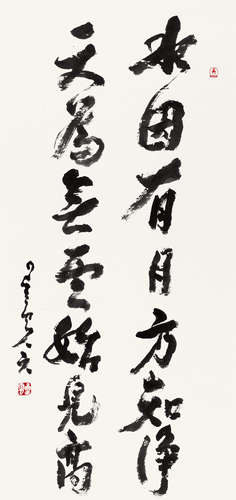 水因有月方知淨
天為無雲始見高